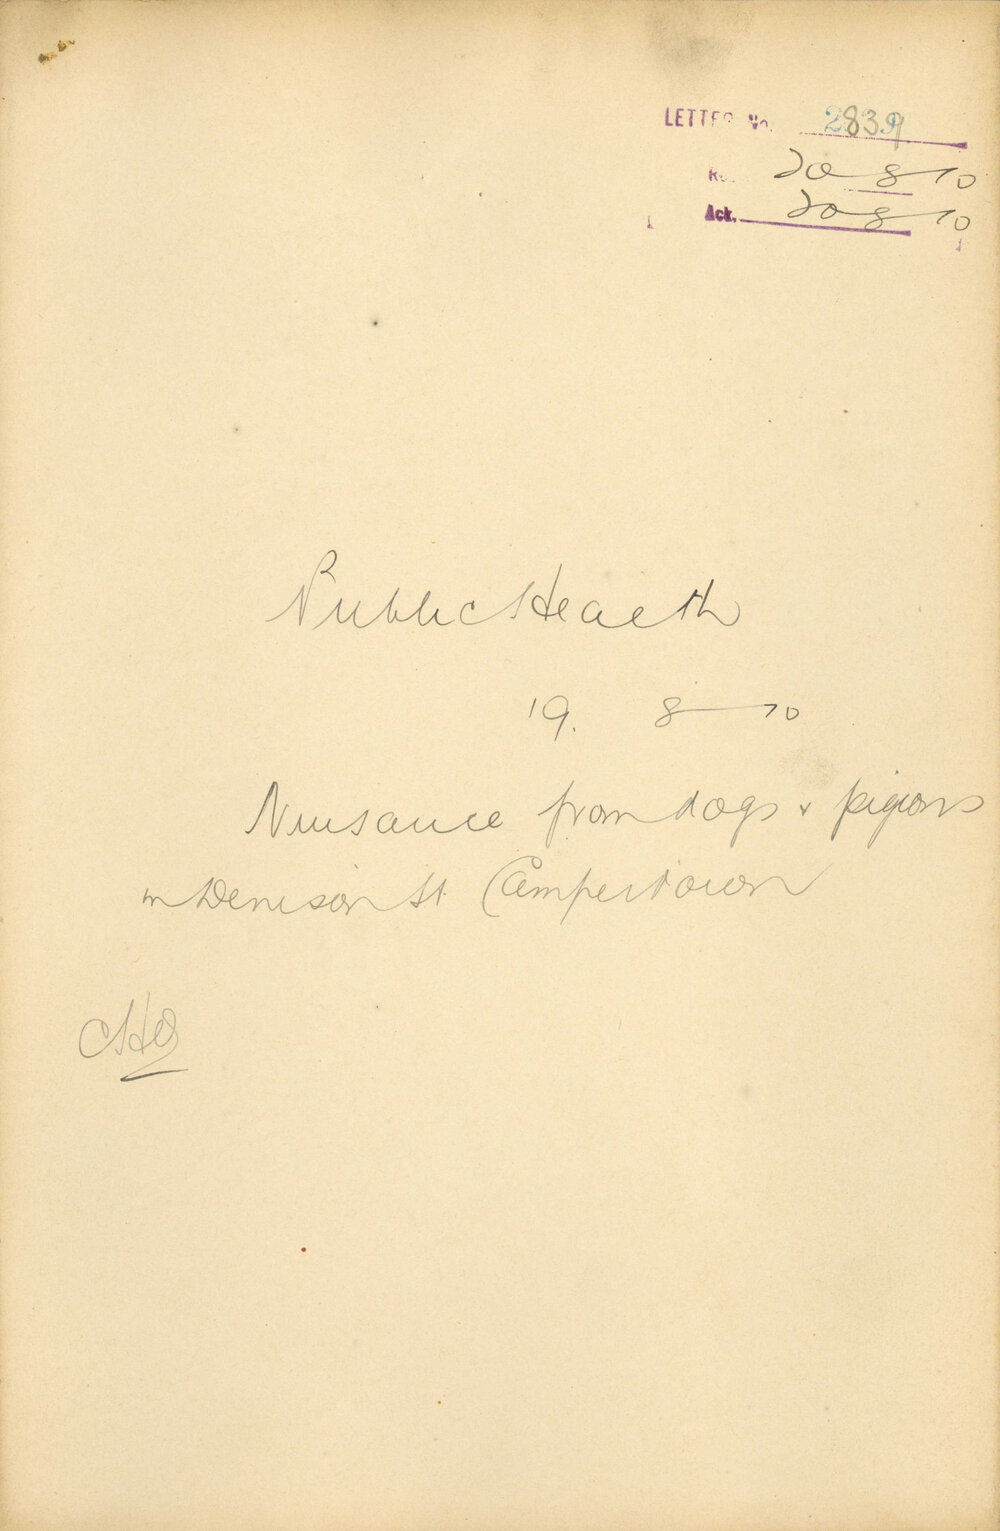 LETTER No. 2839
Re. 20-8-10
Ack. 20-8-10
Public Health
19. 8-10
Nuisance from dogs & pigeons
in Denison St Camperdown